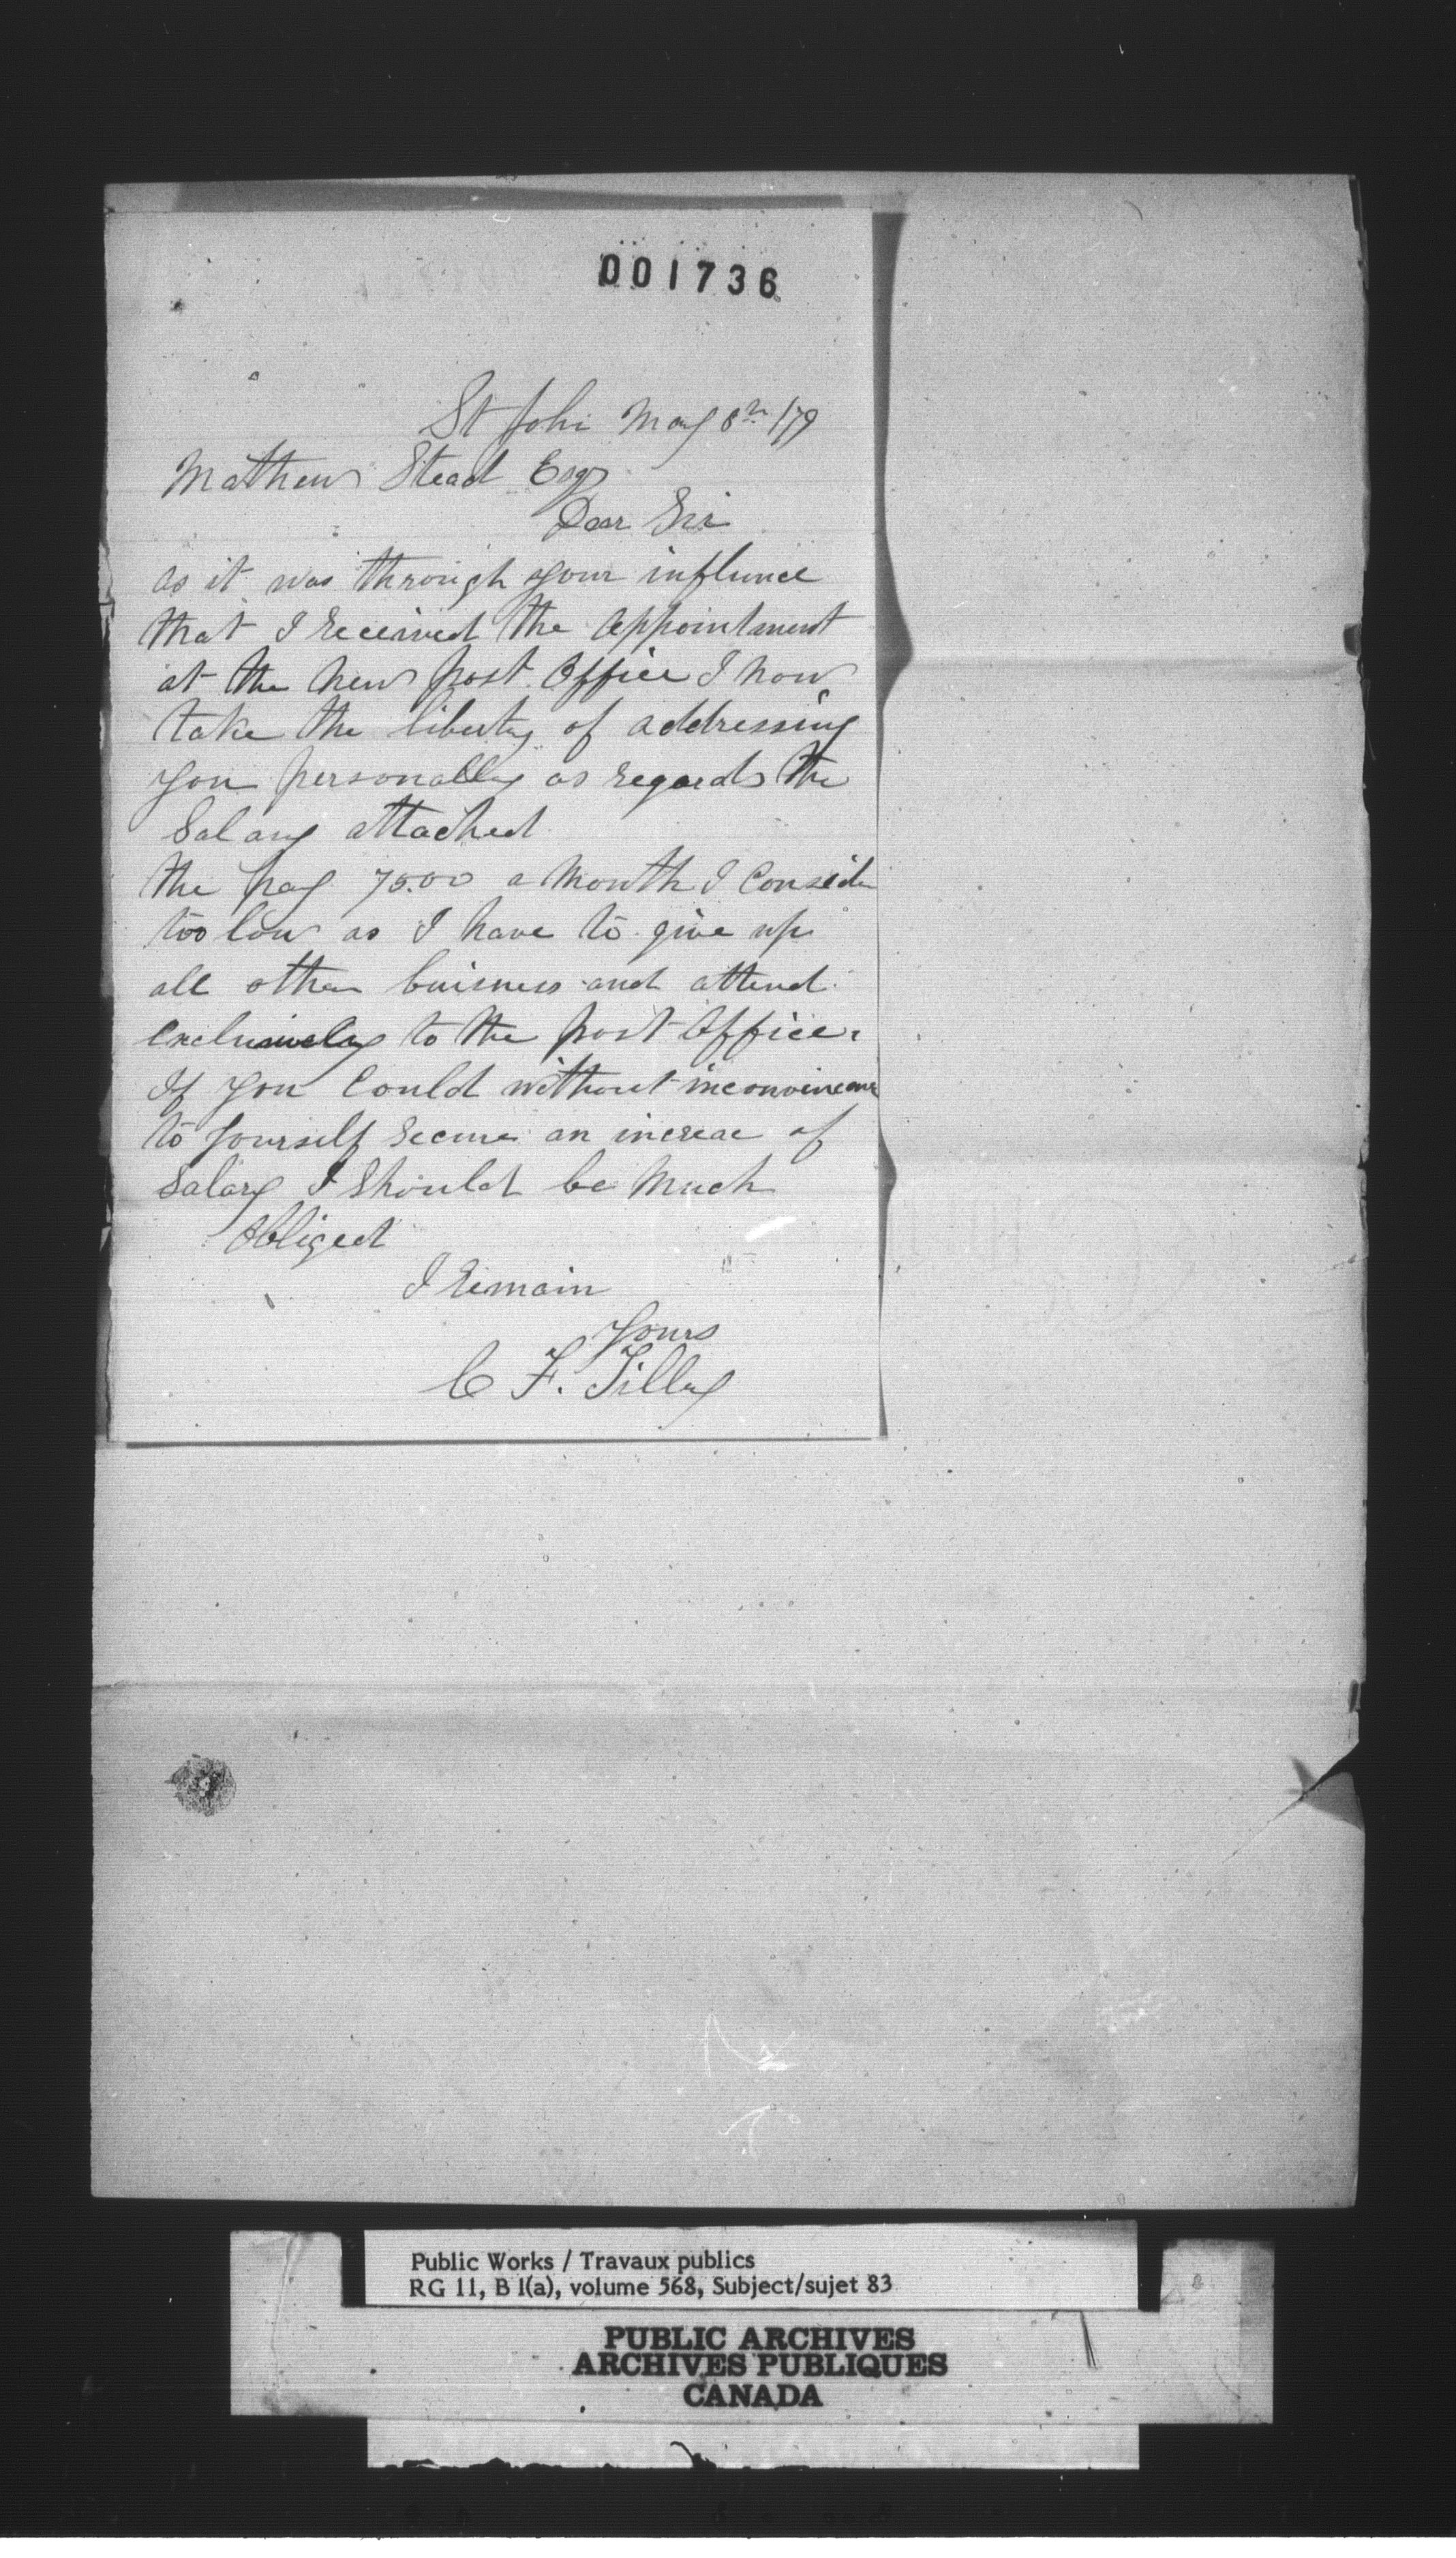 001736
St John May 8th /79
Mathew Stead Esqr
Dear Sir
as it was through your influnce
that I received the appointment
at the new post Office I now
take the liberty of addressing
you personally as regards the
Salary attached
the pay 75.00 a Month I Consider
too low as I have to give up
all other buisness and attend
exclusively to the post Office.
If you Could without inconvineance
to yourself secure an increae of
Salary I Should be Much
Obliged
I remain
Yours
C F. Tilley
Public Works / Travaux publics
RG 11, B 1(a), volume 568, Subject/sujet 83
PUBLIC ARCHIVES
ARCHIVES PUBLIQUES
CANADA